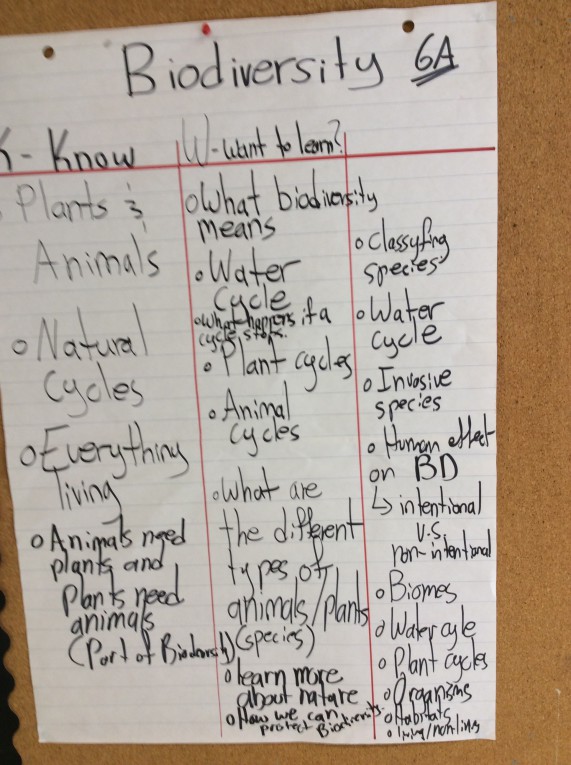 Biodiversity 6A
K - Know
Plants &
Animals
Natural
Cycles
Everything
living
Animals need
plants and
Plants need
animals
(Part of Biodiversity)
W - want to learn?
What biodiversity
means
Water
Cycle
What happens if a
cycle stops.
Plant cycles
Animal
cycles
What are
the different
types of
animals/plants
(species)
learn more
about nature
How we can
protect Biodiversity.
Classyfing
species
Water
cycle
Invasive
species
Human effect
on BD
↳ intentional
v.s
non-intentional
Biomes
Water cycle
Plant cycles
Organisms
Habitats
living/non-living